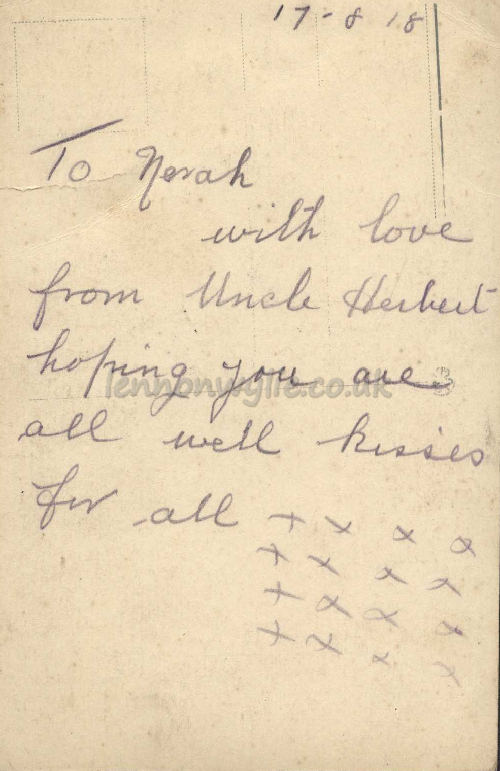 17-8 18
To Norah
with love
from Uncle Herbert
hoping you are
lennonwylie.co.uk
all well kisses
for all + x x x
+ x x x
+ x x x
+ x x x